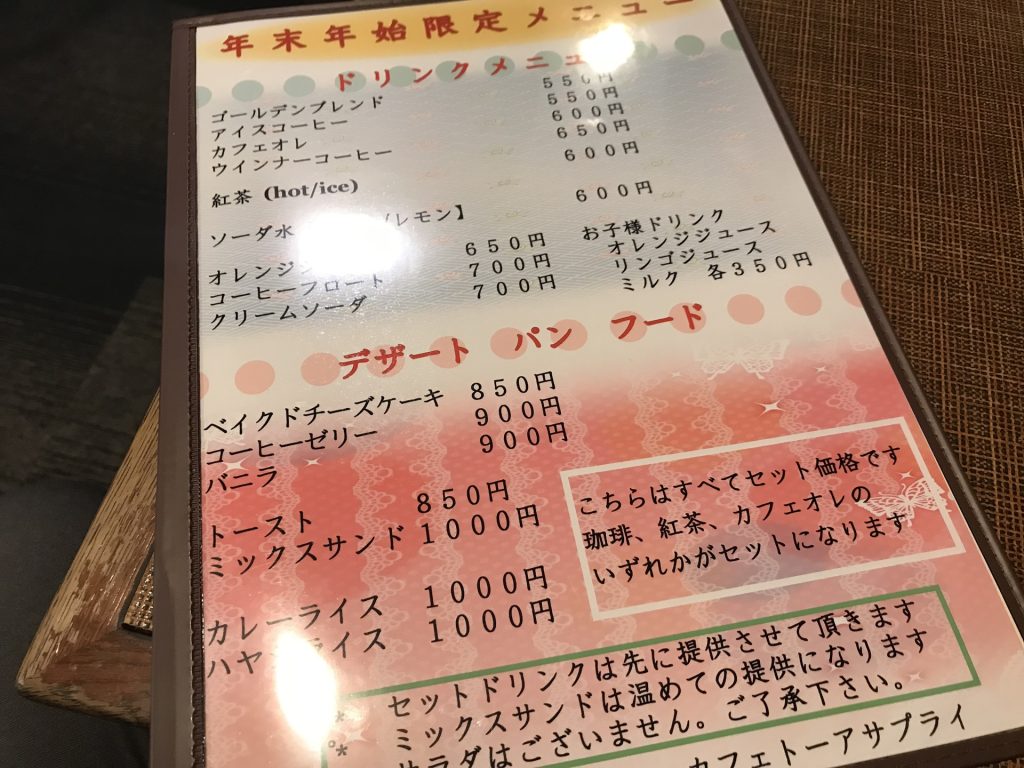 年末年始限定メニュー
ドリンクメニュ
ゴールデンブレンド 550円
アイスコーヒー 550円
カフェオレ 600円
ウインナーコーヒー 650円
紅茶 (hot/ice) 600円
ソーダ水 レモン】 600円
オレンジジ 650円
コーヒーフロート 700円
クリームソーダ 700円
お子様ドリンク
オレンジジュース
リンゴジュース
ミルク 各350円
デザート パン フード
ベイクドチーズケーキ 850円
コーヒーゼリー 900円
バニラ 900円
トースト 850円
ミックスサンド 1000円
カレーライス 1000円
ハヤシライス 1000円
こちらはすべてセット価格です
珈琲、紅茶、カフェオレの
いずれかがセットになります
* セットドリンクは先に提供させて頂きます
°* ミックスサンドは温めての提供になります
サラダはございません。ご了承下さい。
カフェトーアサプライ